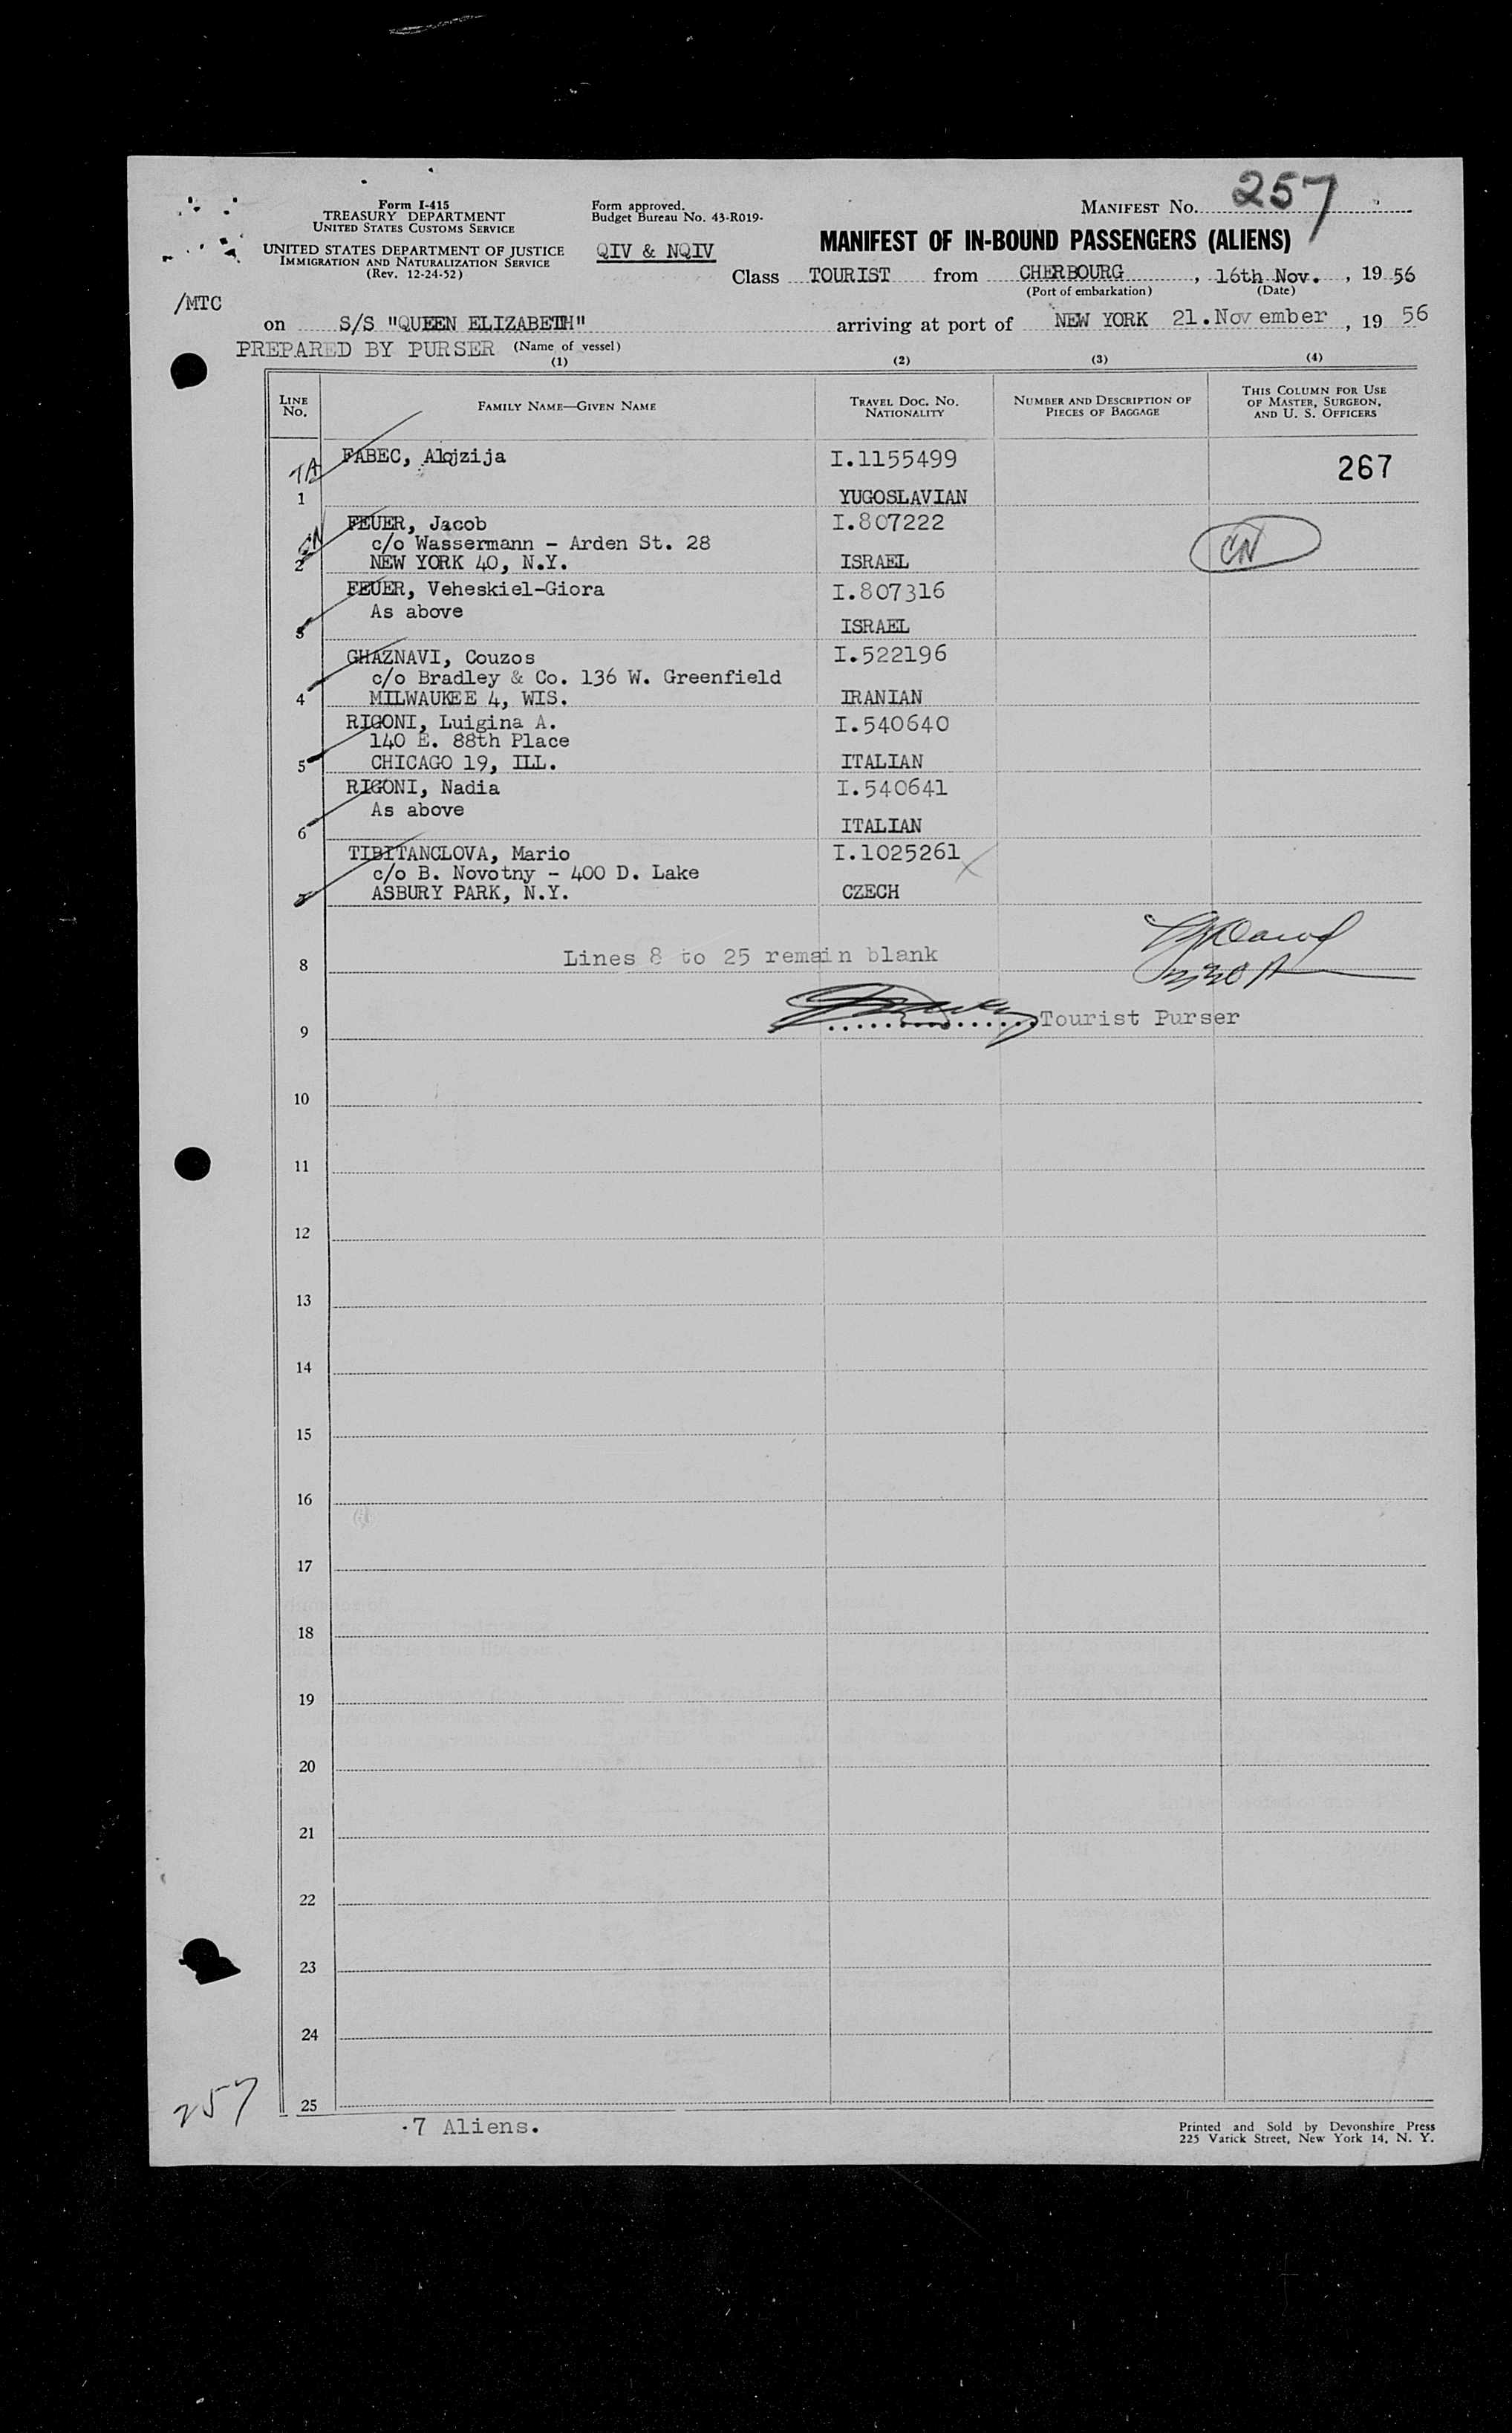 257
Form I-415
TREASURY DEPARTMENT
UNITED STATES CUSTOMS SERVICE
UNITED STATES DEPARTMENT OF JUSTICE
IMMIGRATION AND NATURALIZATION SERVICE
(Rev. 12-24-52)
Form approved.
Budget Bureau No. 43-R019-
QIV & NQIV
MANIFEST NO.
MANIFEST OF IN-BOUND PASSENGERS (ALIENS)
Class TOURIST from CHERBOURG, 16th Nov., 1956
(Port of embarkation) (Date)
/MTC
on S/S "QUEEN ELIZABETH" arriving at port of NEW YORK 21.November, 19 56
PREPARED BY PURSER (Name of vessel)
(1) (2) (3) (4)
LINE NO. FAMILY NAME—GIVEN NAME TRAVEL DOC. NO. NATIONALITY NUMBER AND DESCRIPTION OF PIECES OF BAGGAGE THIS COLUMN FOR USE OF MASTER, SURGEON, AND U. S. OFFICERS
FABEC, Alojzija I.1155499 267
TA
1 YUGOSLAVIAN
FEUER, Jacob I.807222
c/o Wassermann - Arden St. 28 CN
2 NEW YORK 40, N.Y. ISRAEL
FEUER, Veheskiel-Giora I.807316
As above
3 ISRAEL
GHAZNAVI, Couzos I.522196
c/o Bradley & Co. 136 W. Greenfield
4 MILWAUKEE 4, WIS. IRANIAN
RIGONI, Luigina A. I.540640
140 E. 88th Place
5 CHICAGO 19, ILL. ITALIAN
RIGONI, Nadia I.540641
As above
6 ITALIAN
TIBITANCLOVA, Mario I.1025261
c/o B. Novotny - 400 D. Lake
7 ASBURY PARK, N.Y. CZECH
8 Lines 8 to 25 remain blank
9 Tourist Purser
10
11
12
13
14
15
16
17
18
19
20
21
22
23
24
25
257
7 Aliens.
Printed and Sold by Devonshire Press
225 Varick Street, New York 14, N. Y.